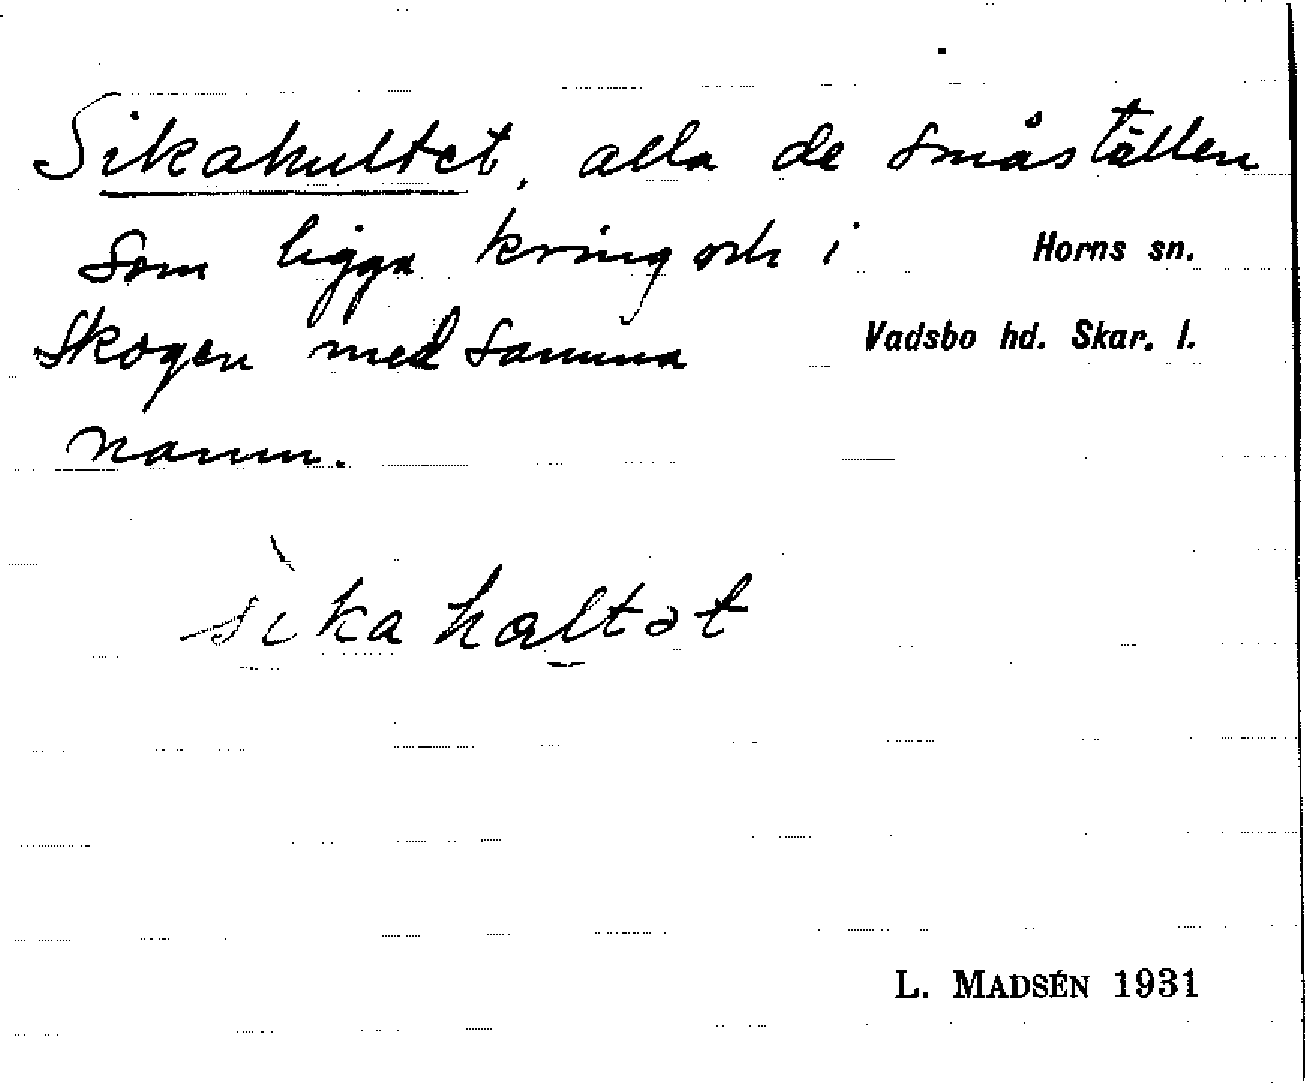 Sikahultet, alla de småställen
som ligga kring och i
Horns sn.
skogen med samma
Vadsbo hd. Skar. l.
namn.
sìka haltət
L. MADSÉN 1931